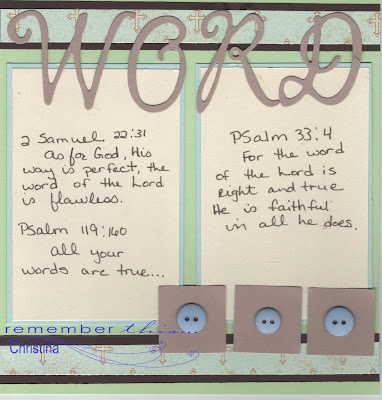 WORD
2 Samuel 22:31
as for God, His
way is perfect, the
word of the Lord
is flawless.
Psalm 119:160
all your
words are true...
Psalm 33:4
For the word
of the Lord is
right and true
He is faithful
in all he does.
remember this...
Christina